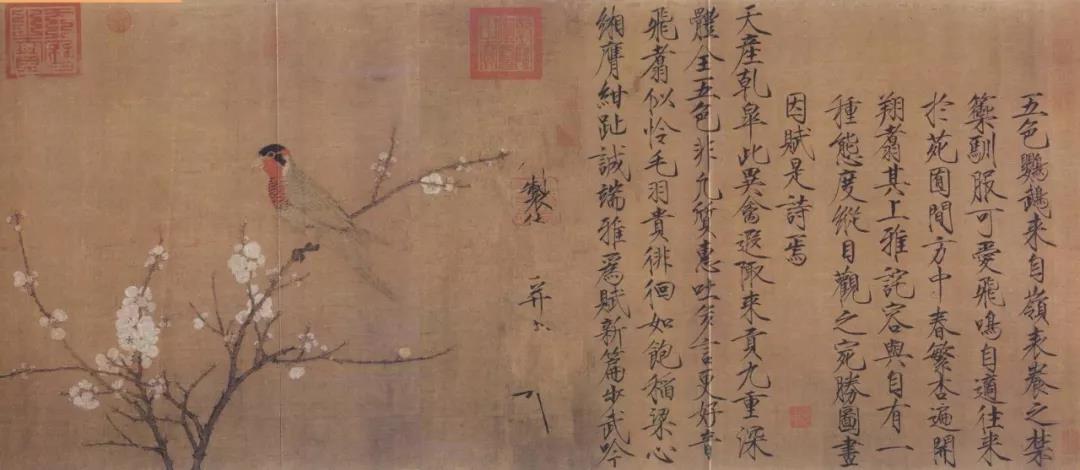 五色鸚鵡来自嶺表養之禁
籞馴服可愛飛鳴自適往来
於苑囿間方中春繁杏遍開
翔翥其上雅詫容與自有一
種態度縱目觀之宛勝圖畫
因賦是詩焉
天産乾皐此異禽遐陬来貢九重深
體全五色非凡質惠吐多言更好音
飛翥似怜毛羽貴徘徊如飽稻粱心
緗膺紺趾誠端雅為賦新篇步武吟
製
并